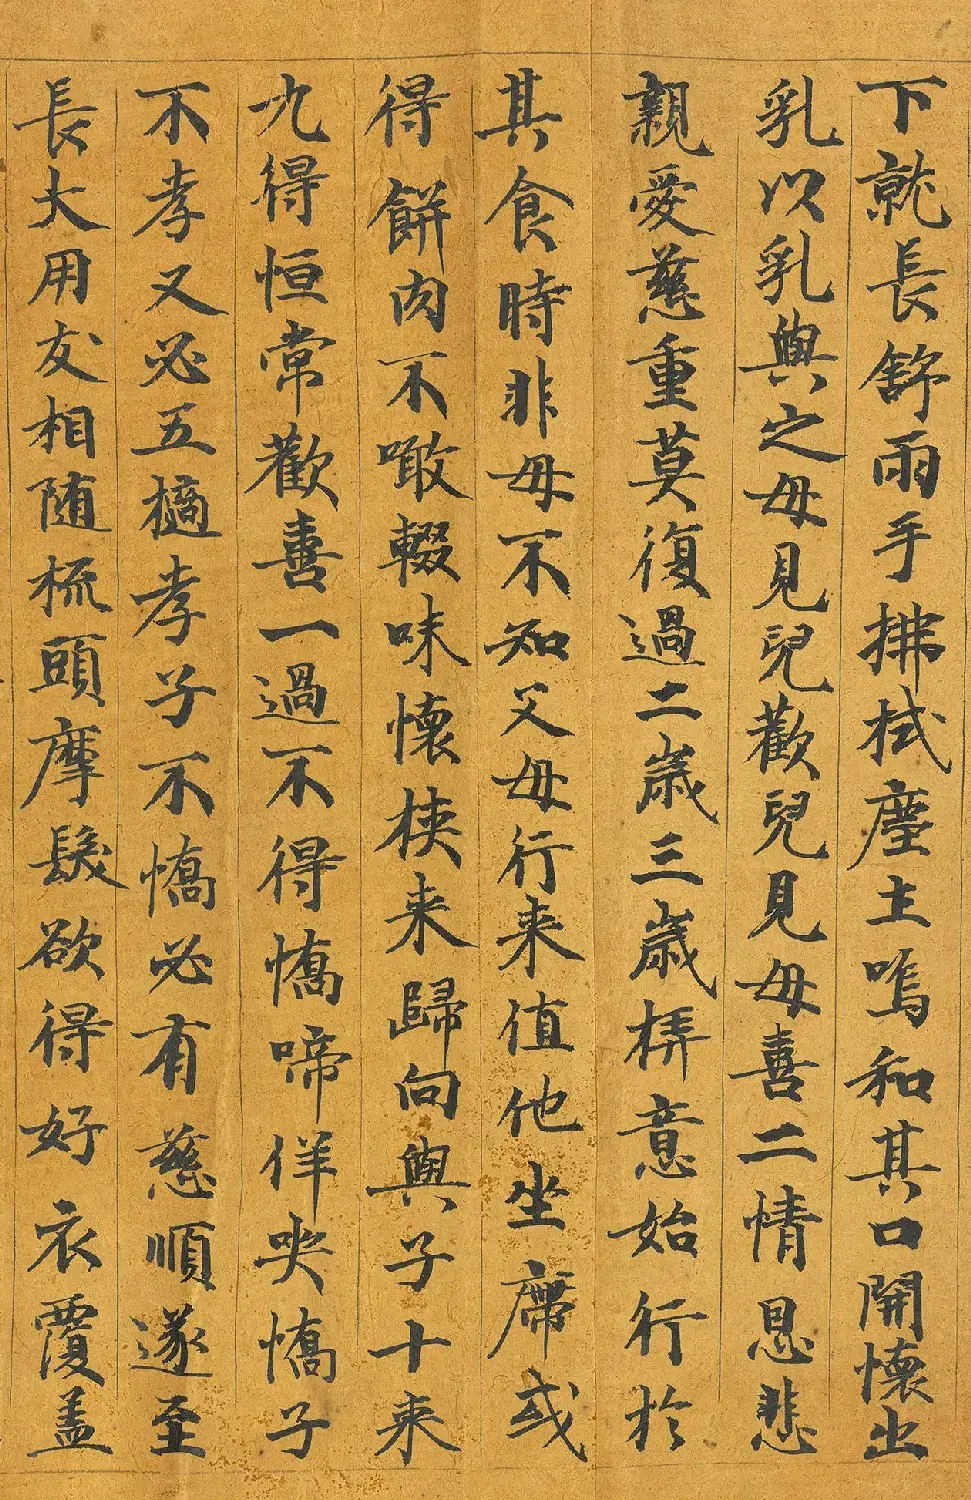 下就長舒兩手拂拭塵土嗚和其口開懷出
乳以乳與之母見兒歡兒見母喜二情恩悲
親愛慈重莫復過二歲三歲弄意始行於
其食時非母不知父母行来值他坐席或
得餅肉不噉輟味懷挾来歸向與子十来
九得恒常歡喜一過不得憍啼佯哭憍子
不孝又必五擿孝子不憍必有慈順遂至
長大用友相随梳頭摩髮欲得好衣覆盖